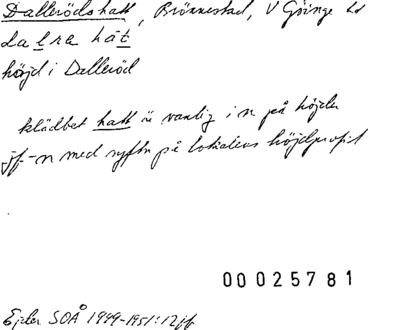 Dalleröds hatt, Brönnestad, V Göinge hd
da lra hát
höjd i Dalleröd
klädbet hatt är vanlig i n på höjder
jf-n med syftn på lokalens höjdprofil
00025781
Efter SOÅ 1949-1951:12ff